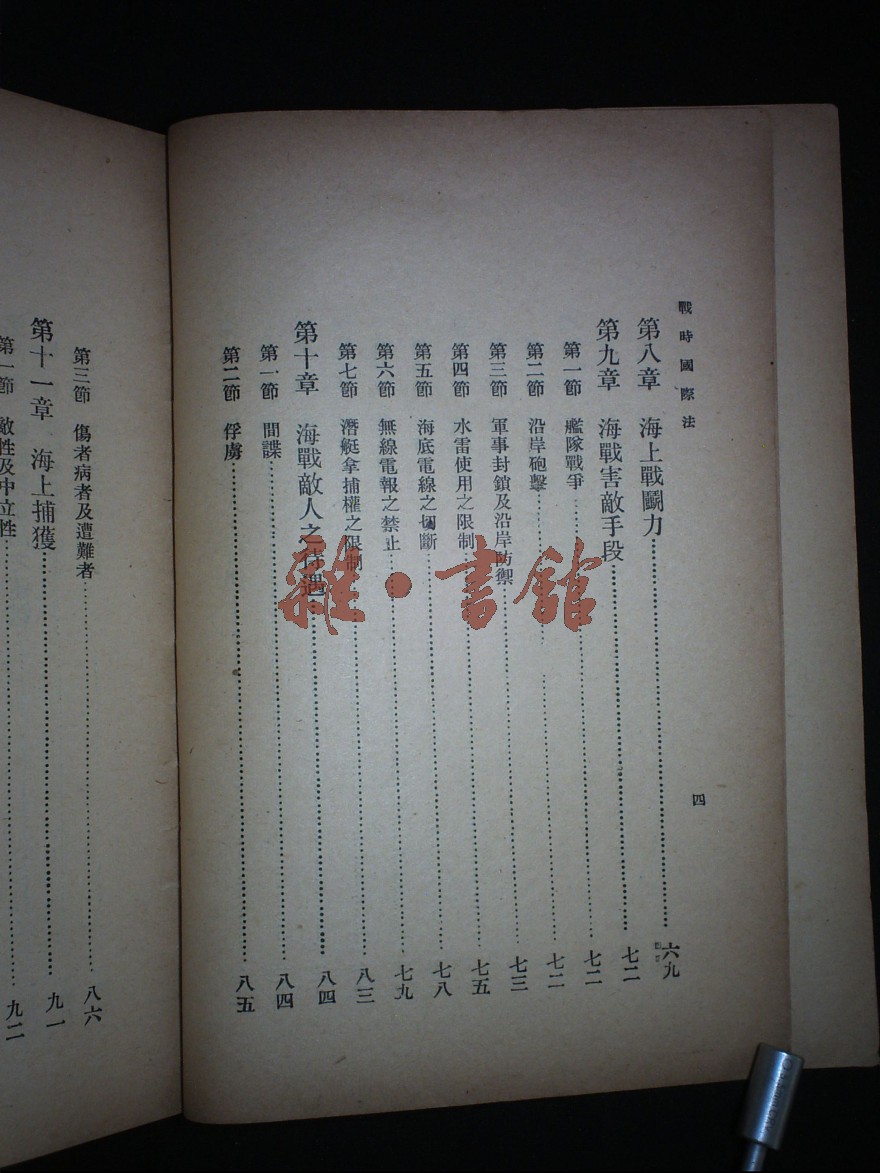 戰時國際法
四
第八章 海上戰鬭力 六九
第九章 海戰害敵手段 七二
第一節 艦隊戰爭 七二
第二節 沿岸砲擊 七二
第三節 軍事封鎖及沿岸防禦 七三
第四節 水雷使用之限制 七五
第五節 海底電線之切斷 七八
第六節 無線電報之禁止 七九
第七節 潛艇拿捕權之限制 八三
第十章 海戰敵人之待遇 八四
第一節 間諜 八四
第二節 俘虜 八五
第三節 傷者病者及遭難者 八六
第十一章 海上捕獲 九一
第一節 敵性及中立性 九二
雜·書館